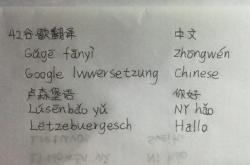 42谷歌翻译 中文
Gǔgē fānyì zhōngwén
Google Iwwersetzung Chinese
卢森堡语 你好
Lúsēnbǎo yǔ Nǐ hǎo
Lëtzebuergesch Hallo